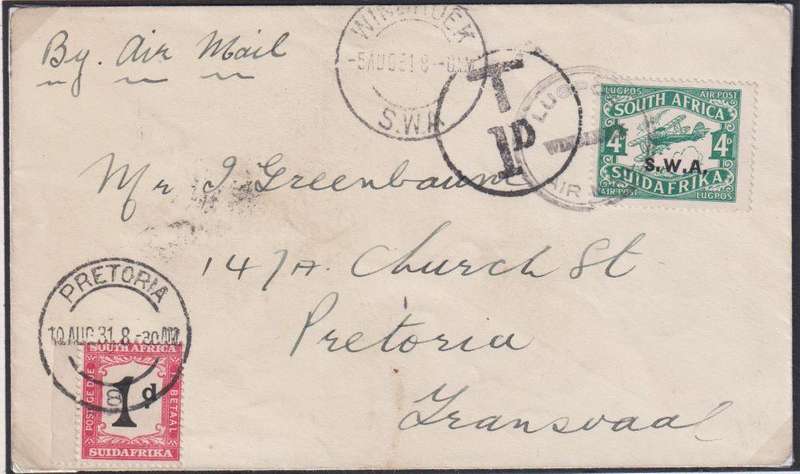 By Air Mail
WINDHOEK
-5 AUG 31 8 -
S.W.A
T
1D
LUGPOS
AIR
LUGPOS AIR POST
SOUTH AFRICA
4d 4d
S.W.A.
SUIDAFRIKA
AIR POST LUGPOS
Mr J Greenbaum
147A. Church St
Pretoria
Transvaal
PRETORIA
10 AUG 31. 8 -30 AM
8
SOUTH AFRICA
POSTAGE DUE
1d
TE BETAAL
SUIDAFRIKA